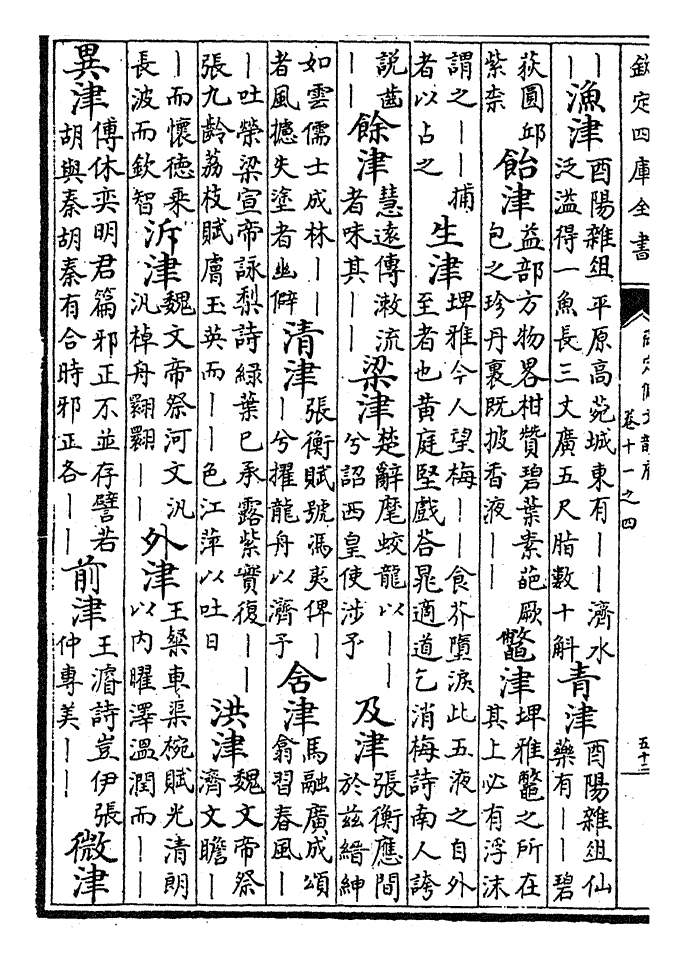 欽定四庫全書
御定佩文韻府
卷十一之四
五十三
｜｜
漁津
酉陽雜俎平原高苑城東有｜｜濟水
泛溢得一魚長三丈廣五尺脂數十斛
青津
酉陽雜俎仙
藥有｜｜碧
荻圓邱
紫柰
飴津
益部方物畧柑贊碧葉素葩厥
包之珍丹裏既披香液｜｜
鼈津
埤雅鼈之所在
其上必有浮沫
謂之｜｜捕
者以占之
生津
埤雅今人望梅｜｜食芥墮淚此五液之自外
至者也黄庭堅戲荅晁適道乞消梅詩南人誇
説齒
｜｜
餘津
慧遠傳漱流
者味其｜｜
梁津
楚辭麾蛟龍以｜｜
兮詔西皇使涉予
及津
張衡應間
於兹縉紳
如雲儒士成林｜｜
者風摅失塗者幽僻
清津
張衡賦號馮夷俾｜
｜兮擢龍舟以濟予
含津
馬融廣成頌
翕習春風｜
｜吐榮梁宣帝詠梨詩緑葉已承露紫實復｜｜
張九齡荔枝賦膚玉英而｜｜色江萍以吐日
洪津
魏文帝祭
濟文瞻｜
｜而懷德乘
長波而欽智
泝津
魏文帝祭河文汎
汎棹舟翾翾｜｜
外津
王粲車渠椀賦光清朗
以内曜澤温潤而｜｜
異津
傅休奕明君篇邪正不並存譬若
胡與秦胡秦有合時邪正各｜｜
前津
王濬詩豈伊張
仲專美｜｜
微津